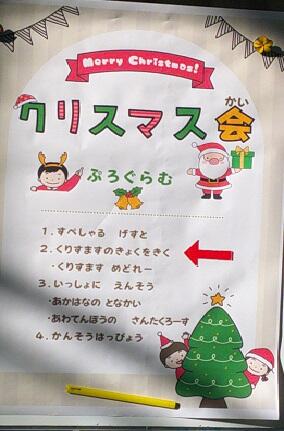 Merry Christmas!
かい
クリスマス会
ぷろぐらむ
1. すぺしゃる げすと
2. くりすますのきょくをきく
・くりすます めどれー
3. いっしょに えんそう
・あかはなの となかい
・あわてんぼうの さんたくろーす
4. かんそうはっぴょう